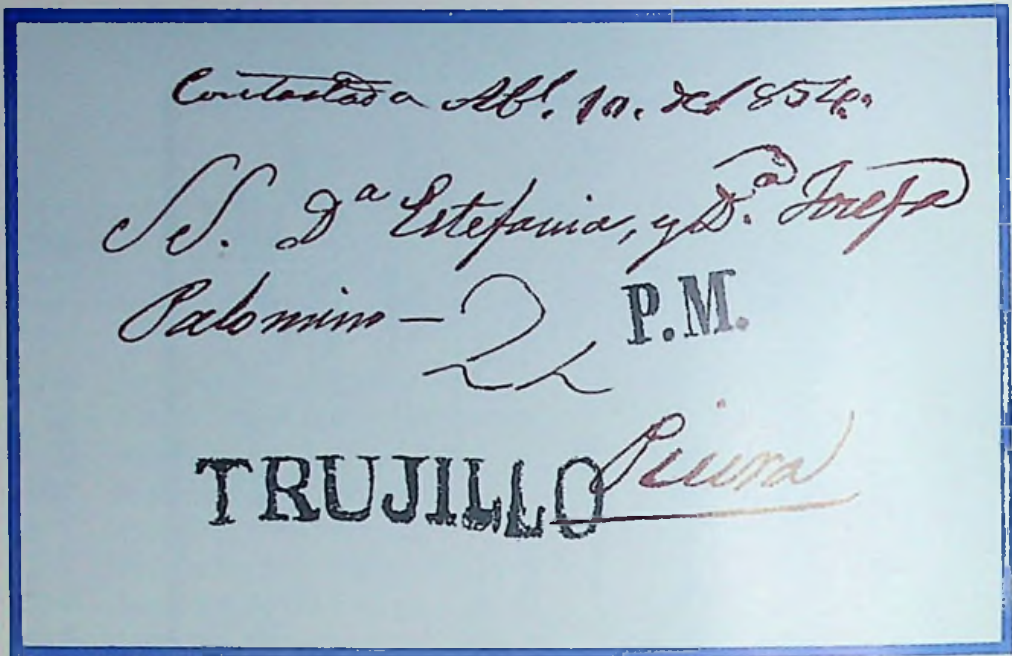 Contestada Abl. 10. del 854.
SS. Dª Estefania, y D.ª Josefa
Palomino — 2
P.M.
Piura
TRUJILLO